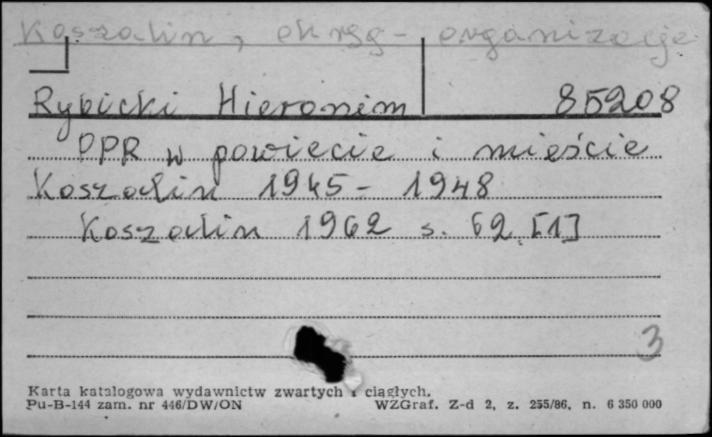 Koszalin, okręg - organizacje
Rybicki Hieronim 85208
PPR w powiecie i mieście
Koszalin 1945 - 1948
Koszalin 1962 s. 62, [1]
3
Karta katalogowa wydawnictw zwartych i ciągłych.
Pu-B-144 zam. nr 446/DW/ON WZGraf. Z-d 2, z. 255/86, n. 6 350 000